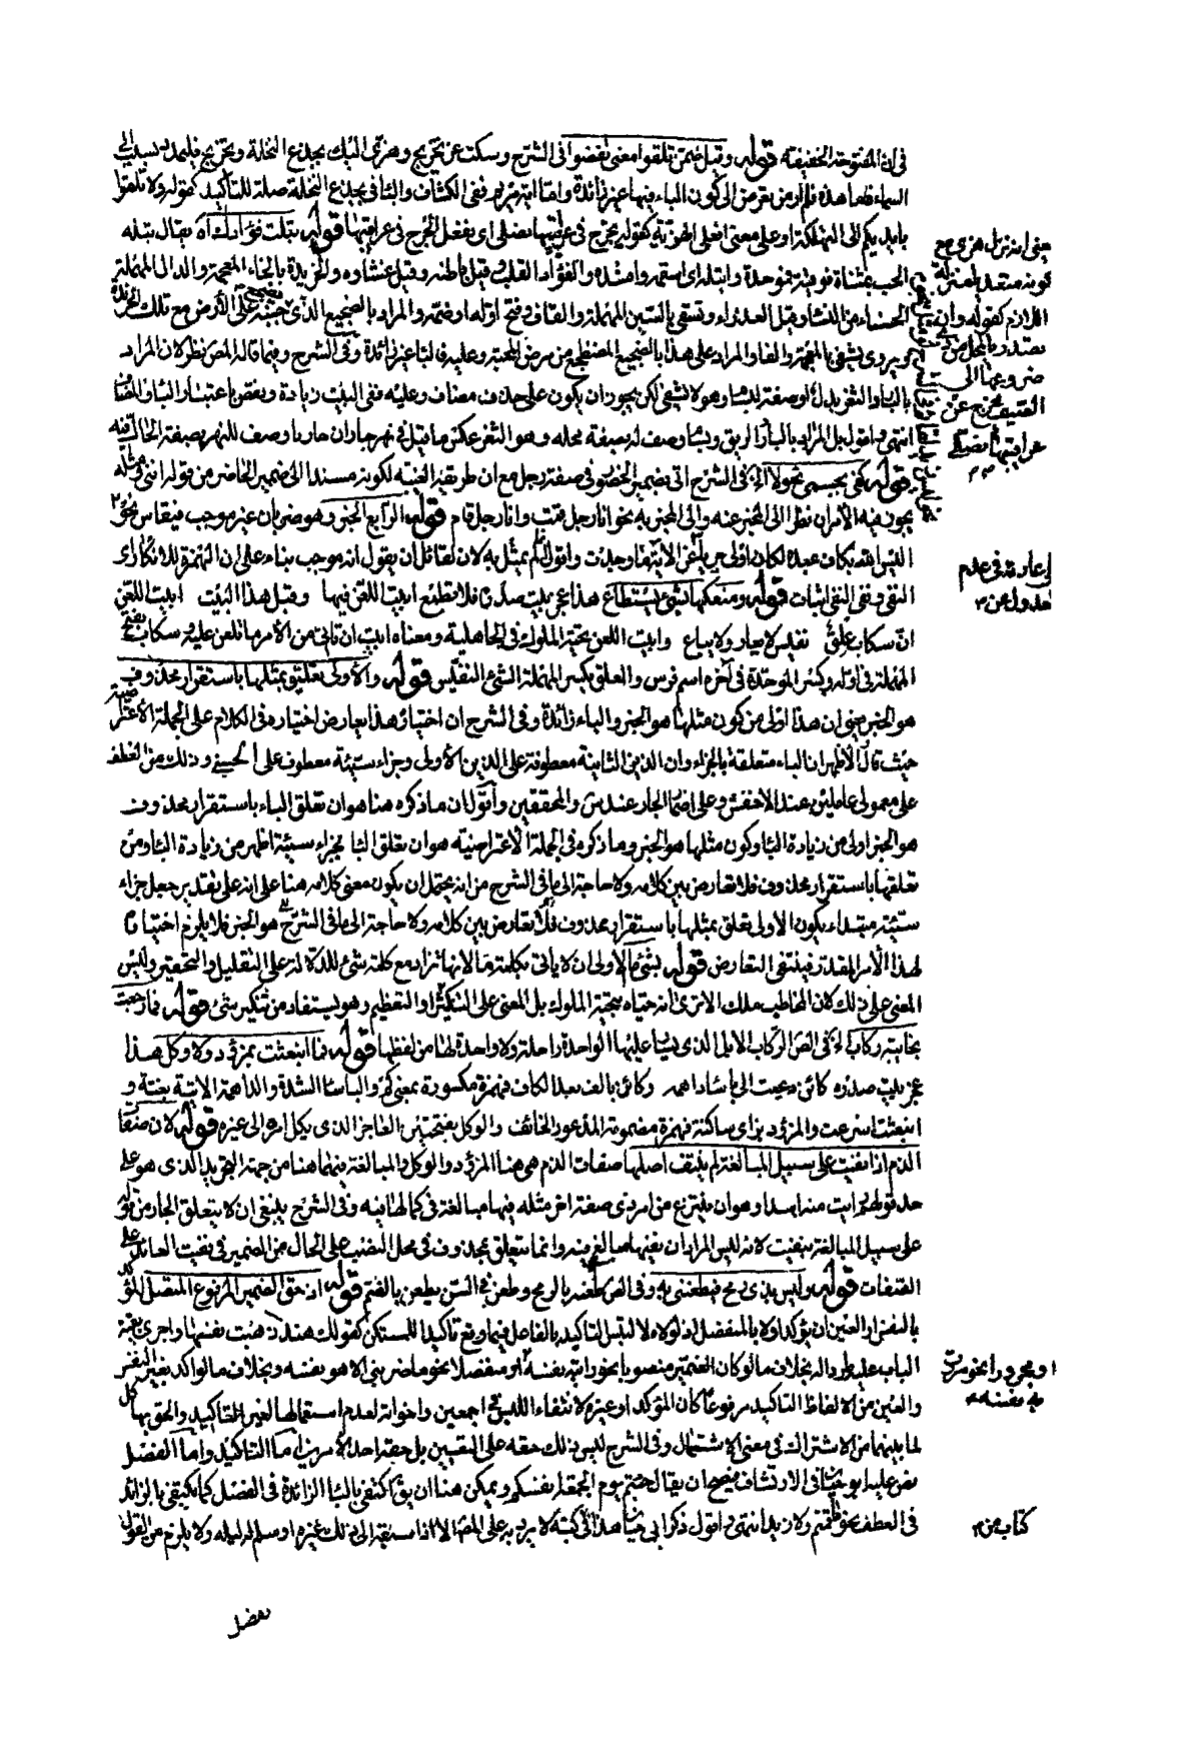 في ان المفتوحة الخفيفة قوله وقيل ضمن تلقوا معنى تفضوا في الشرح وسكت عن تخريج وهزي اليك بجذع النخلة وتخريج فليمدد بسبب الى
السماء
بايديكم الى التهلكة او على معنى افعلي الهز به كقوله يجرح في عراقيبها نصلي اى يفعل الجرح في عراقيبها قوله تبلت فؤادك اه يقال تبله
الحب بمثناة فوقية فموحدة وابتله اى اسقمه وافسده والفؤاد القلب وقيل باطنه وقيل غشاوه والخريدة بالخاء المعجمة والدال المهملة
الحسناء من النساء وقيل العذراء وتسقى بالسين المهملة والقاف وفتح اوله او ضمه والمراد بالضجيع الذى
ويروى تشفى بالمعجمة والفاء والمراد على هذا بالضجيع المضطجع من مرض المحبة وعليه فالباء غير زائدة وفي الشرح وفيما قاله المص نظر لان المراد
بالبارد الثغر بدليل او صفه ببسام وهو لا يشفى لكن يجوز ان يكون على حذف مضاف وعليه ففي البيت زيادة ونقص باعتبار الباء والمضاف
انتهى واقول بل المراد بالبارد الريق وبسام وصف له بصفة محله وهو الثغر عكس ما قيل في نهر جار ان جاريا وصف للنهر بصفة الحال فيه
قوله كفى بجسمي نحولا اه في الشرح اتى بضمير الحضور في صفة رجل مع ان طريقه الغيبة لكونه مسندا الى ضمير الحاضر من قوله انني ومثله
يجوز فيه الامران نظرا الى المخبر عنه والى المخبر به نحو انا رجل قمت وانا رجل قام قوله الرابع الخبر وهو ضربان غير موجب فينقاس نحو
اليس الله بكاف عبده لكان اولى واقول لم يمثل به لان لقائل ان يقول انه موجب بناء على ان الهمزة للانكارى
النفي ونفي النفي اثبات قوله ومنعكها بشئ يستطاع هذا عجز بيت صدره فلا تطمع ابيت اللعن فيها وقبل هذا البيت ابيت اللعن
ان سكاب علق نفيس لا يعار ولا يباع وابيت اللعن تحية الملوك في الجاهلية ومعناه ابيت ان تاتي من الامر ما تلعن عليه وسكاب بفتح
المهملة في اوله وكسر الموحدة في آخره اسم فرس والعلق بكسر المهملة الشئ النفيس قوله والاولى تعليق بمثلها باستقرار محذوف
هو الخبر يعني ان هذا اولى من كون مثلها هو الخبر والباء زائدة وفي الشرح ان اختياره هذا يعارض اختياره في الكلام على الجملة الاعتراضية
حيث قال الاظهر ان الباء متعلقة بالجزاء وان الذين الثانية معطوفة على الذين الاولى وجزاء سيئة معطوف على الحسنى وذلك من العطف
على معمولي عاملين عند الاخفش وعلى اضمار الجار عند س والمحققين واقول ان ما ذكره هنا هو ان تعلق الباء باستقرار محذوف
هو الخبر اولى من زيادة الباء وكون مثلها هو الخبر وما ذكره في الجملة الاعتراضية هو ان تعلق الباء بجزاء سيئة اظهر من زيادة الباء ومن
تعلقها باستقرار محذوف فلا تعارض بين كلاميه ولا حاجة الى ما في الشرح من انه يحتمل ان يكون معنى كلامه هنا على انه على تقدير جعل جزاء
سيئة مبتداء يكون الاولى تعلق بمثلها باستقرار محذوف فلا تعارض بين كلاميه ولا حاجة الى ما في الشرح هو الخبر فلا يلزم اختيار
لهذا الامر المقدر فينتفي التعارض قوله بشئ ما الاولى ان لا ياتي بكلمة ما لانها تزاد مع كلمة شئ للدلالة على التقليل والتحقير وليس
المعنى على ذلك لان المخاطب ملك الا ترى انه حياه بتحية الملوك بل المعنى على التكثير او التعظيم وهو يستفاد من تنكير شئ قوله فما رجعت
بخائبة ركاب اه في الص الركاب الابل الذى يسار عليها الواحدة راحلة ولا واحدة لها من لفظها قوله فما انبعثت بمزؤد ولا وكل هذا
عجز بيت صدره كائن دعيت الى باساء داهمة وكائن بالف بعد الكاف فهمزة مكسورة بمعنى كم والباساء الشدة والداهمة الاتية بغتة و
انبعثت اسرعت والمزؤد بزاى ساكنة فهمزة مضمومة المذعور الخائف والوكل بفتحتين العاجز الذى يكل امره الى غيره قوله لان صفات
الذم اذا نفيت على سبيل المبالغة لم ينتف اصلها صفات الذم هي هنا المزؤد والوكل والمبالغة فيهما هنا من جهة التجريد الذى هو على
حد قولهم رايت منه اسدا وهو ان ينتزع من امر ذى صفة اخر مثله فيها مبالغة في كمالها فيه وفي الشرح ينبغي ان لا يتعلق الجار من قوله
على سبيل المبالغة بنفيت لانه ليس المراد ان نفيها مبالغ فيه وانما يتعلق بمحذوف في محل النصب على الحال من الضمير في نفيت العائد على
الصفات قوله وليس بذى رمح فيطعنني به وفي الص طعنه بالرمح وطعن في السن يطعن بالضم قوله اذ حق الضمير المرفوع المتصل المؤكد
بالنفس او العين ان يؤكد اولا بالمنفصل اذ لولاه لا لتبس التاكيد بالفاعل فيما وقع تاكيدا للمستكن كقولك هند ذهبت نفسها واجرى بقية
الباب عليه طردا له بخلاف ما لو كان الضمير منصوبا نحو رايته نفسه او منفصلا نحو ما ضربني الا هو نفسه وبخلاف ما لو اكد بغير النفس
والعين من الالفاظ التاكيد مرفوعا كان المؤكد او غيره لانتفاء اللبس في اجمعين واخواته لعدم استعمالها لغير التاكيد والحق بها كل
لما بينهما من الاشتراك في معنى الاشتمال وفي الشرح ليس ذلك حقه على التعيين بل حقه احد الامرين اما التاكيد واما الفصل
نص عليه ابو حيان في الارتشاف فيصح ان يقال جئتم يوم الجمعة انفسكم ويمكن هنا ان يق اكتفى بالباء الزائدة في الفصل كما يكتفى بالزائد
في العطف نحو ما قمتم ولا زيد انتهى واقول ذكر ابي حيان هذا في كتبه لا يرد به على المص الا اذا سبقه الى ذلك غيره او سلم له دليله ولا يلزم من القول
يعني انه نزل هزى مع
كونه متعديا منزلة
اللازم كقوله وان
تعتذر بالمحل من
ضروعها الى
الضيف يجرح في
عراقيبها نصلي
او مجرورا نحو مررت
به نفسه
كتاب من
بعض